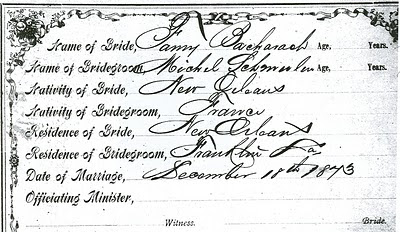 Name of Bride, Fanny Bacharach Age, Years.
Name of Bridegroom, Michel Age, Years.
Nativity of Bride, New Orleans
Nativity of Bridegroom, France
Residence of Bride, New Orleans
Residence of Bridegroom, Franklin La
Date of Marriage, December 18th 1873
Officiating Minister,
Witness. Bride.